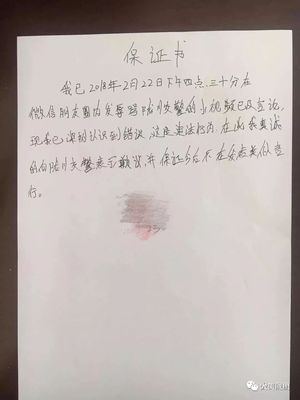 保证书
我已2018年2月22日下午四点三十分在
微信朋友圈内发辱骂陆川交警的小视频已及言论,
现我已深刻认识到错误,这是违法行为,在此我真诚
的向陆川交警表示歉议,并保证今后不在发表类似言
行。